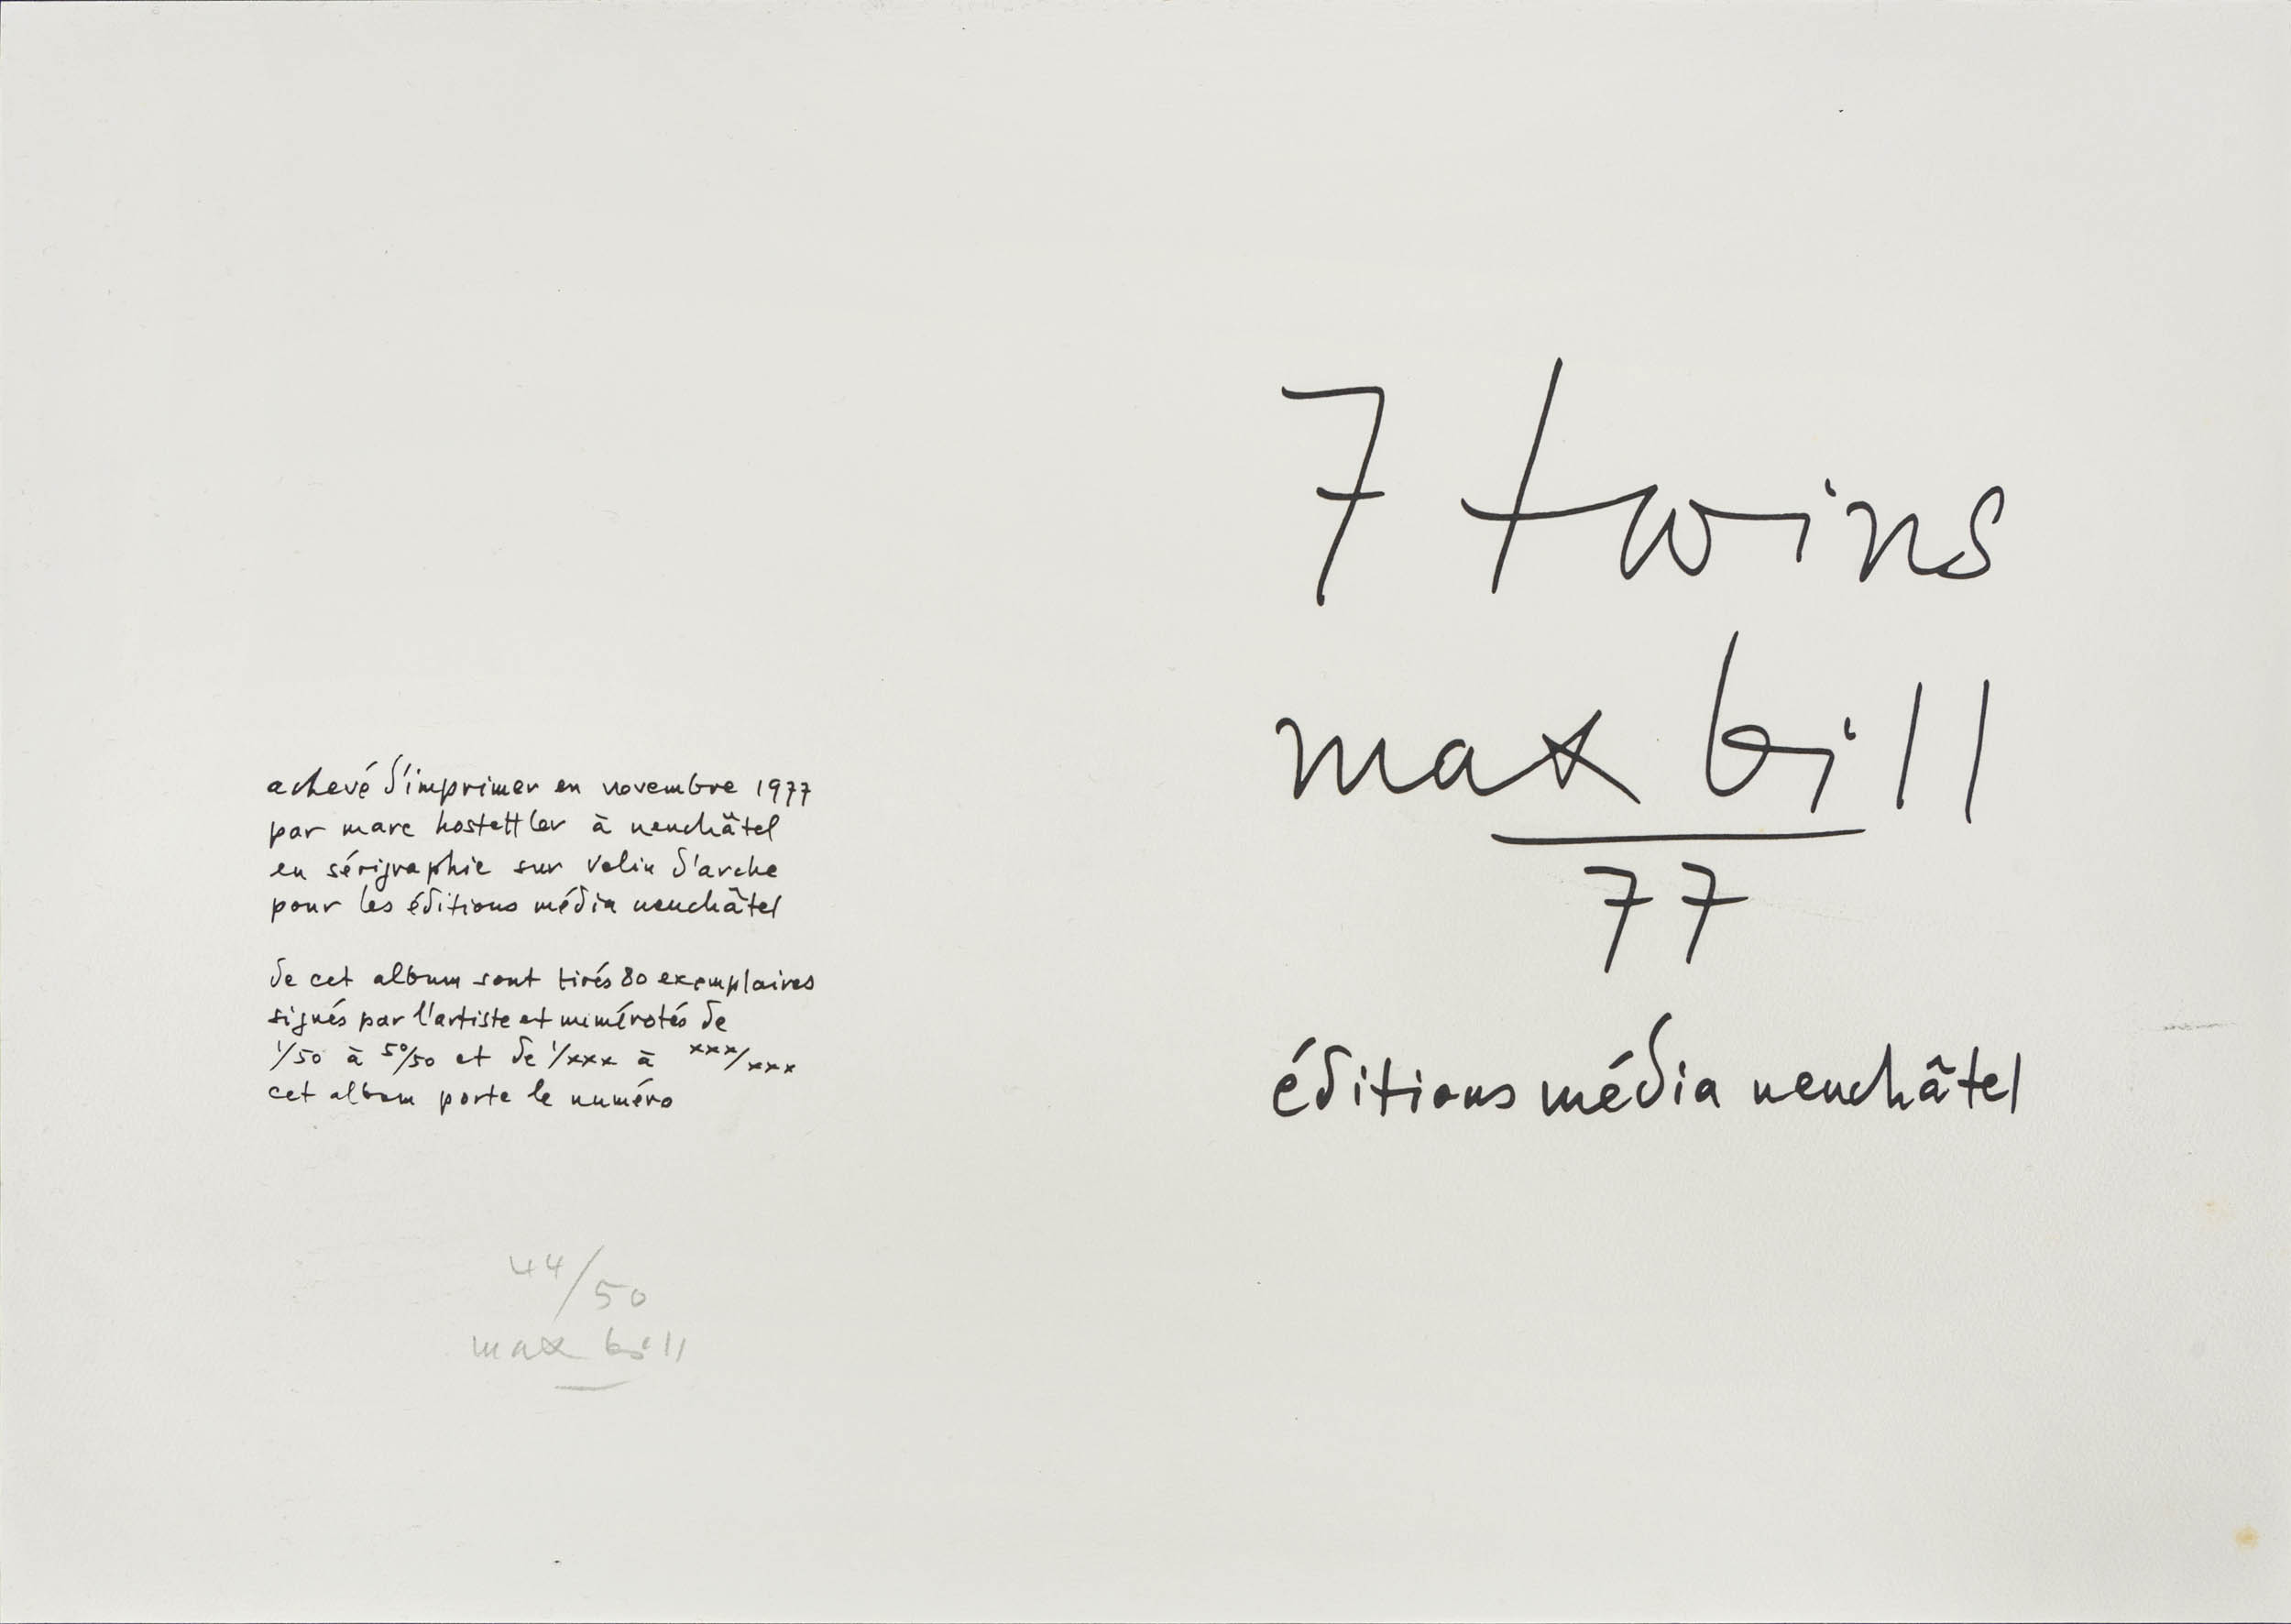 achevé d'imprimer en novembre 1977
par marc hostettler à neuchâtel
en sérigraphie sur velin d'arche
pour les éditions média neuchâtel
de cet album sont tirés 80 exemplaires
signés par l'artiste et numérotés de
1/50 à 50/50 et de 1/xxx à xxx/xxx
cet album porte le numéro
44/50
max bill
7 twins
max bill
77
éditions média neuchâtel